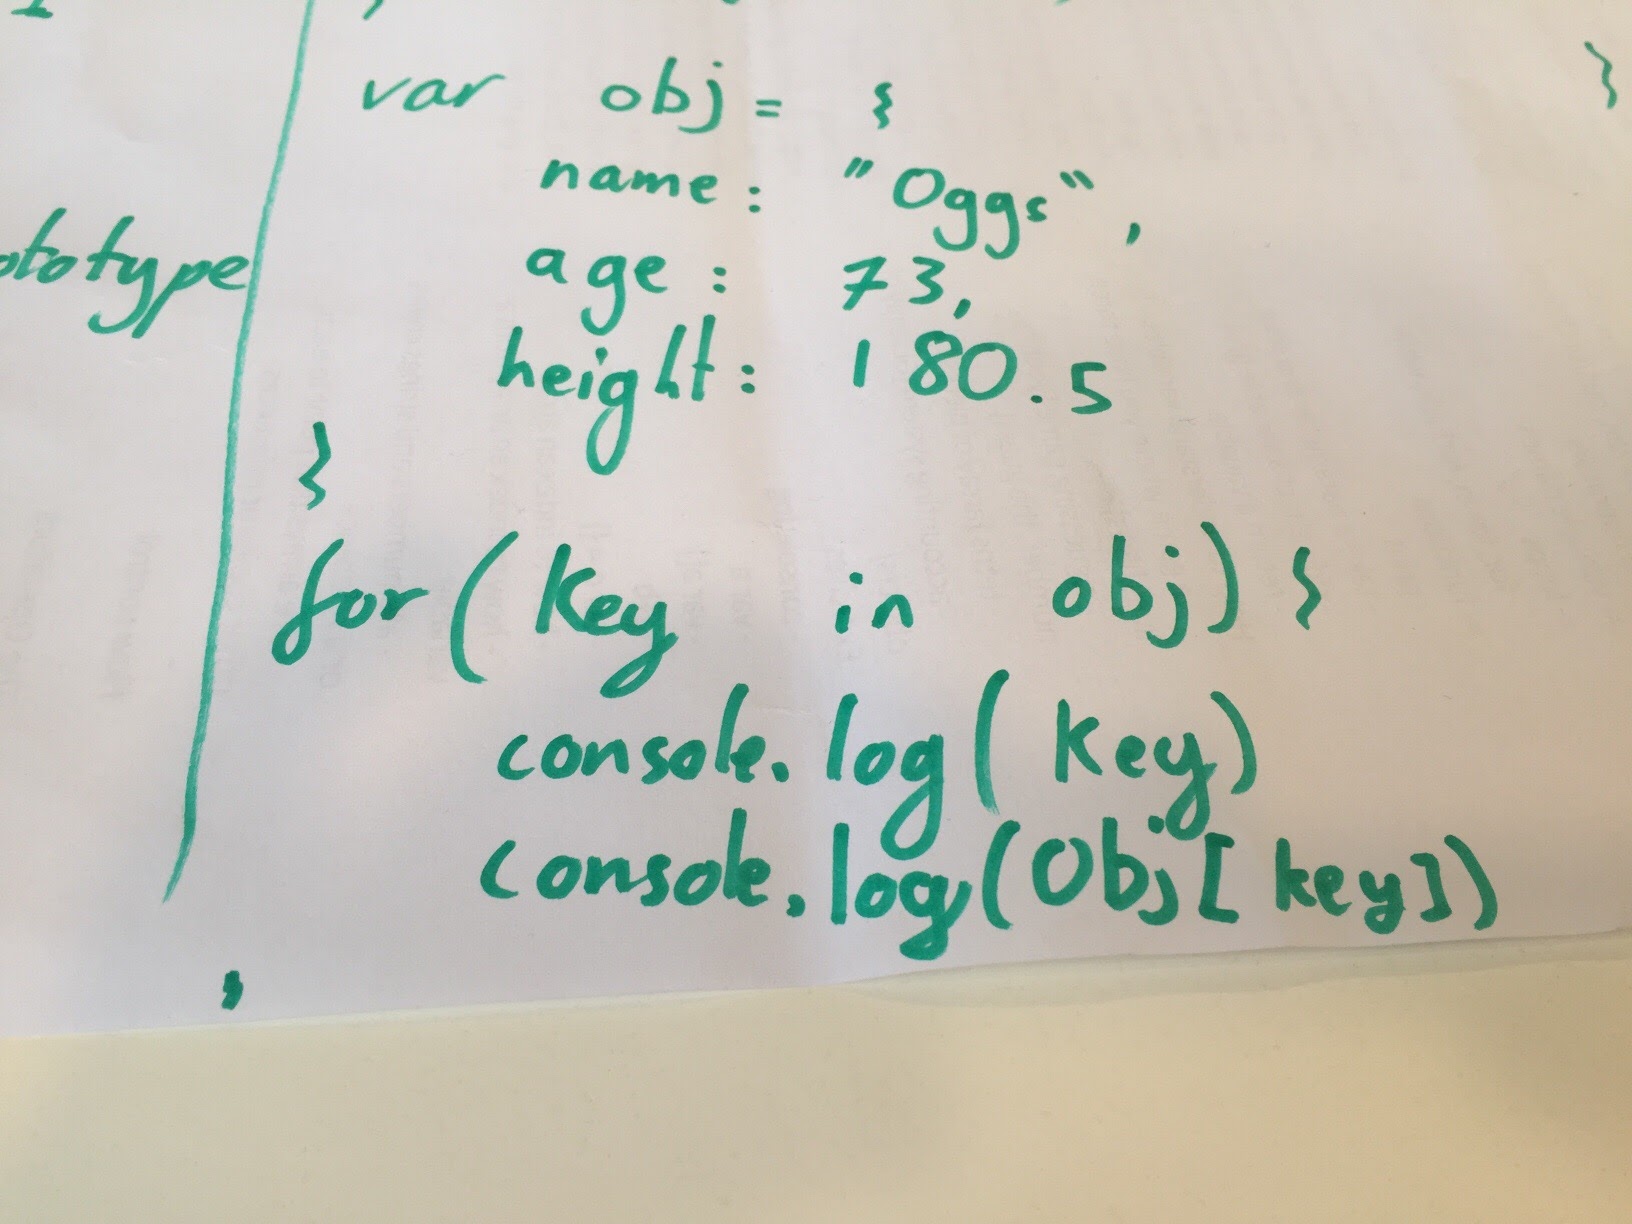 var obj = {
name: "Oggs",
age: 73,
height: 180.5
}
for (key in obj) {
console.log(key)
console.log(Obj[key])
}
}